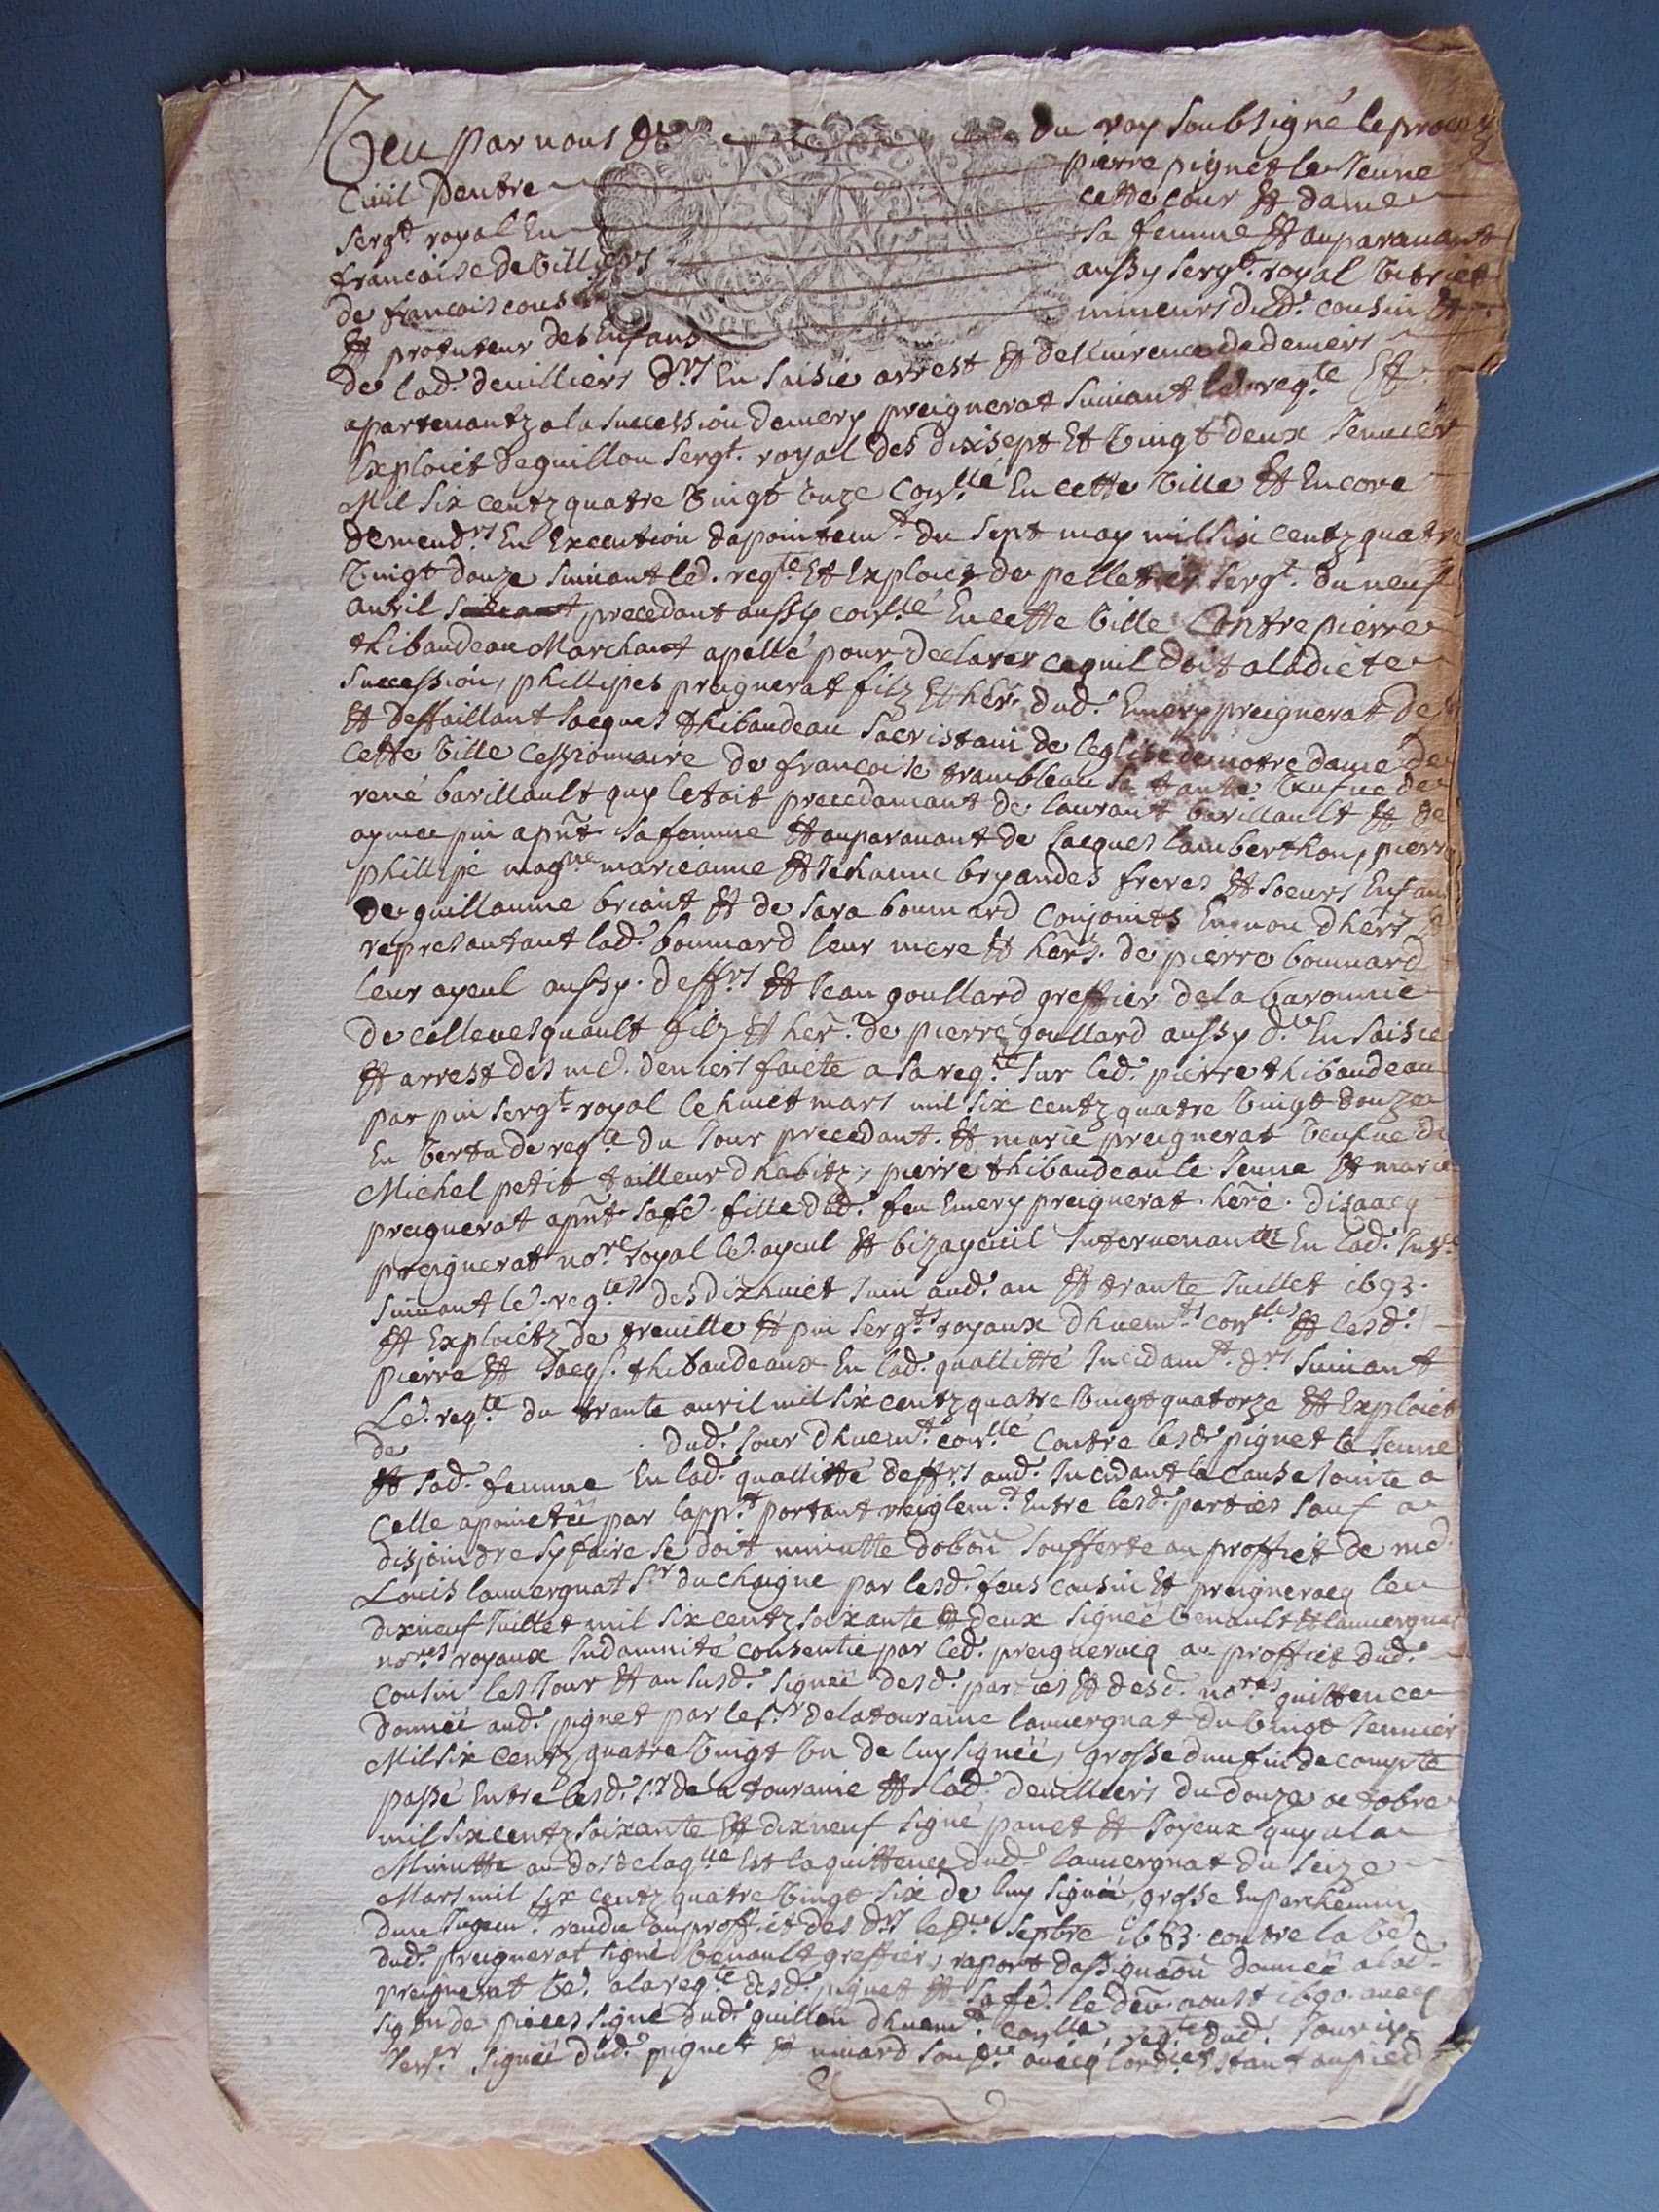 Veu par nous du roy soubsigné le proces
Civil Dentre pierre pignet le Jeune
sergt. royal En cette cour Et dame
francoise de Villiers sa femme Et auparavant
de francois cousin aussy sergt. royal
Et protuteur des Enfans mineurs dud. cousin Et
de lad. devilliers drs En saisie arrest Et dellivrence de deniers
apartenantz a la succession demery preignerat suivant les reqte Et
Exploict de guillon sergt. royal des dixsept Et Vingt deux Jenvier
Mil six centz quatre Vingt Unze coñllé En cette Ville Et Encore
demendrs En Execution dapointemt du sept may mil six centz quatre
Vingt douze suivant led. reqte Et Exploict de pelletier sergt. du neuf
avril precedant aussy coñllé En cette Ville Contre pierre
thibaudeau Marchant apellé pour declarer cequil doit a ladicte
succession, phillipes preignerat filz Et her. dud. Emery preignerat
Et deffaillant Jacques thibaudeau sacristain de leglise de notre dame de
cette Ville cessionnaire de francoise trambleau sa tante Veufve de
rené barillault quy letoit precedamant de laurant barillault Et de
aymee pin apñt sa femme Et auparavant de Jacques lamberthon, pierre
phillipe magne marieanne Et Jehanne bryandes freres Et soeurs Enfans
De guillaume briant Et de sara bounard Conjoints En nom dhers
represantant lad. bounard leur mere Et hers. de pierre bounard
leur ayeul aussy deffrs Et Jean goullard greffier de la baronnie
de cellevesquault filz Et her. de pierre goullard aussy dr En saisie
Et arrest des md. deniers faicte a sa reqte sur led. pierre thibaudeau
par pin sergt. royal le huict mars mil six centz quatre Vingt douze
En Vertu de reqte du Jour precedant. Et marie preignerat Veufve de
Michel petit tailleur dhabitz, pierre thibaudeau le Jeune Et marie
preignerat apñt sa fe. fille dud. feu Emery preignerat here. disaacq
preignerat nore royal le. ayeul Et bizayeuil Intervenantz En lad. Instce
suivant le. reqtes des dixhuict Juin aud. an Et trante Juillet 1693.
Et Exploictz de treuille Et pin sergts royaux dhuemts coñlles Et lesd.
pierre Et Jacqs. thibaudeaux En lad. quallitté Incidamt. drs suivant
Le. reqte du trante avril mil six centz quatre Vingt quatorze Et Exploict
de dud. Jour dhuemt. coñllé Contre lesd. pignet le Jeune
Et sad. femme En lad. quallitté deffrs aud. Incidant la cause Jointe a
Celle apointtéé par lappt portant reiglemt. Entre lesd. parties sauf a
disjoindre sy faire se doit minutte dobon soufferte au proffict de me.
Louis lauvergnat sr du chaigne par lesd. feus cousin Et preigneracq le
dixneuf Juillet mil six centz soixante Et deux signéé benault Et lauvergnat
nores royaux Indamnité consentie par led. preigneracq au proffict dud.
Cousin les Jour Et an susd. signéé desd. parties Et desd. nores quittence
donnéé aud. pignet par le sr delatouraine lauvergnat du Vingt Jenvier
Mil six Centz quatre Vingt Un de luy signéé, grosse dun fin de compte
passé Entre lesd. sr de la touraine Et lad. devilliers du douze octobre
mil six centz soixante Et dixneuf signé panet Et Joyeux quy a la
Minutte au dos de laqlle Est la quittence dud. lauvergnat du seize
Mars mil six centz quatre Vingt six de luy signéé, grosse En parchemin
dune Jugemt. rendue au proffict des drs le septbre 1683. contre la Ve
dud. preignerat signé benault greffier, raport dassignaõn donnéé a lad.
preignerat Ve. a la reqte desd. pignet Et sa fe. le aoust 1690. avecq
de pieces signé dud. guillon dhuemt. coñllé, reqte dud. Jour
signéé dud. pignet Et avecq lordce Estant au pied